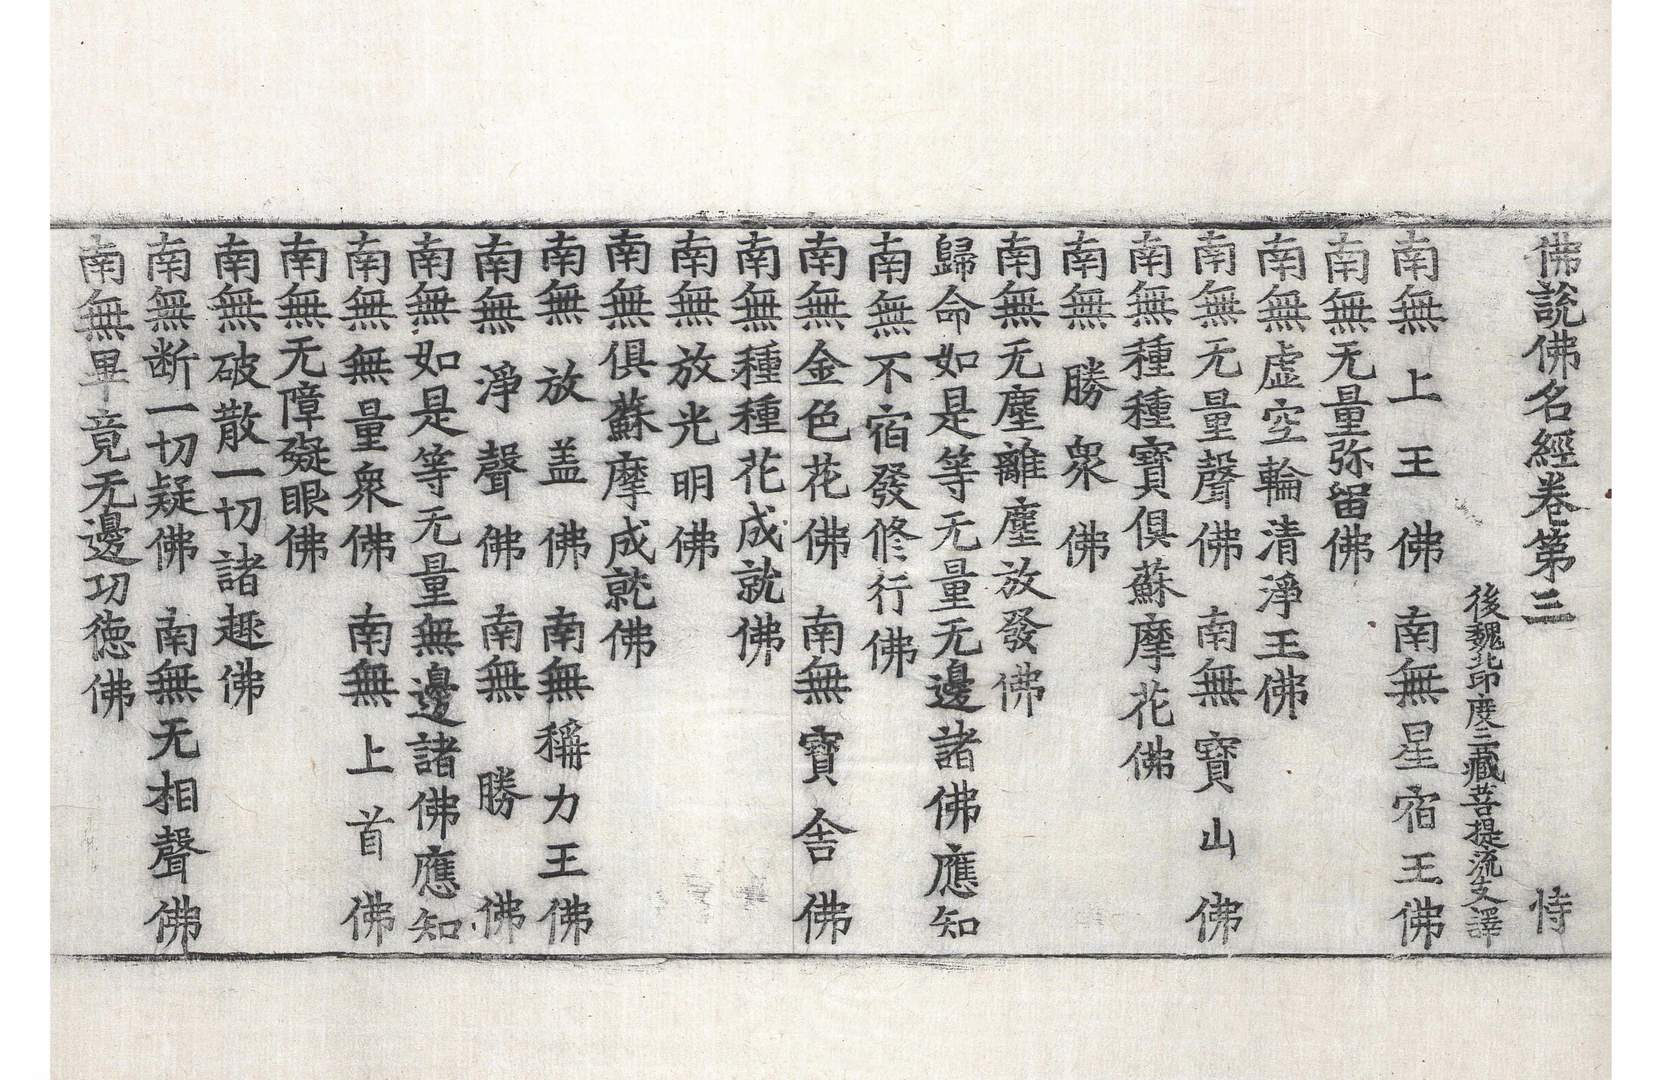 佛說佛名經卷第三 恃
後魏北印度三藏菩提流支譯
南無上王佛 南無星宿王佛
南無无量弥留佛
南無虛空輪清淨王佛
南無无量聲佛 南無寶山佛
南無種種寶俱蘇摩花佛
南無勝衆佛
南無无塵離塵放發佛
歸命如是等无量无邊諸佛應知
南無不宿發修行佛
南無金色花佛 南無寶舍佛
南無種種花成就佛
南無放光明佛
南無俱蘇摩成就佛
南無放盖佛 南無稱力王佛
南無淨聲佛 南無勝佛
南無如是等无量無邊諸佛應知
南無無量衆佛 南無上首佛
南無无障礙眼佛
南無破散一切諸趣佛
南無断一切疑佛 南無无相聲佛
南無畢竟无邊功徳佛